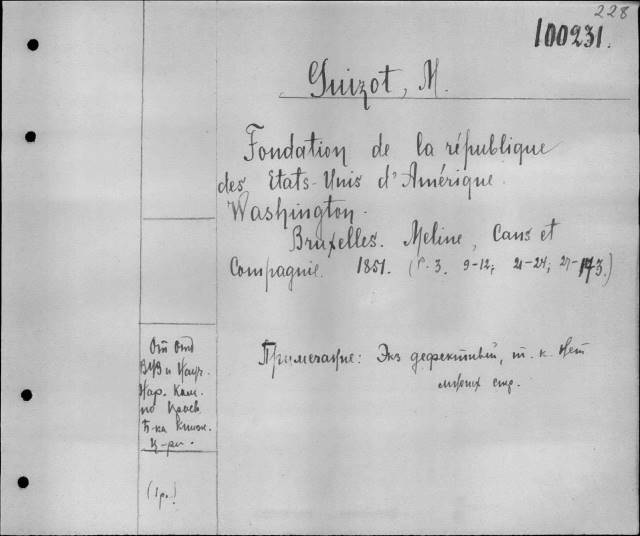 228
100231.
Guizot, M.
Fondation de la république
des Etats-Unis d'Amérique.
Washington.
Bruxelles. Meline, Cans et
Compagnie. 1851. (P. 3. 9-12; 21-24; 27-173.)
Примечание: Экз дефективный, т. к. нет
стр.
От отд
Нар. Ком.
по
Б-ка
(1 р.)